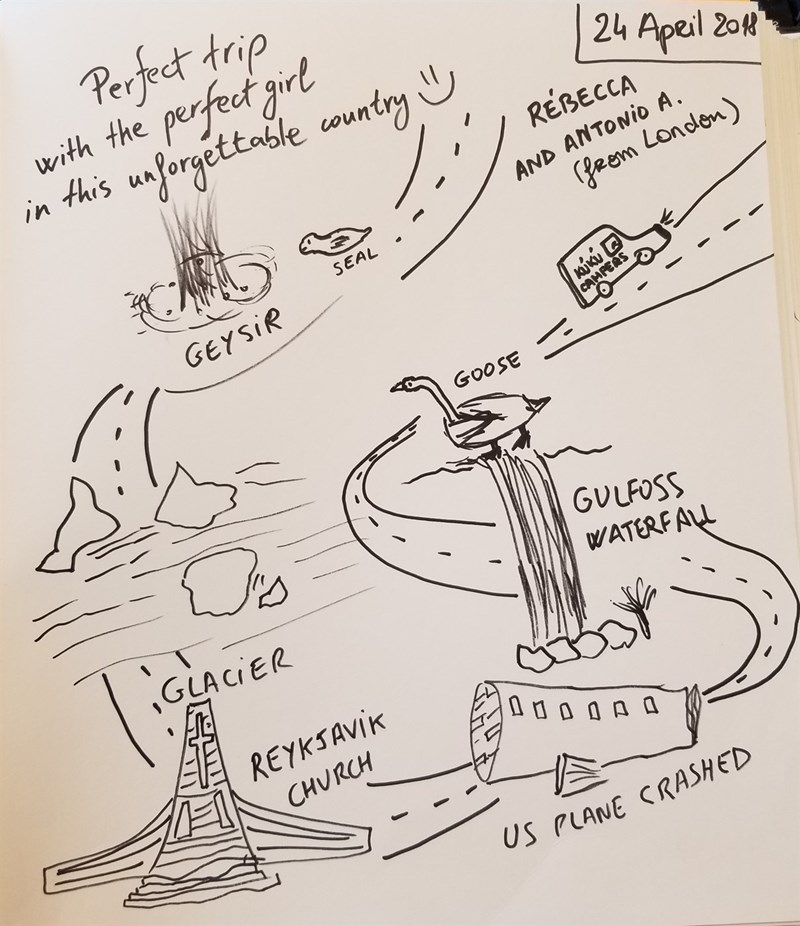 24 April 2018
Perfect trip
with the perfect girl
in this unforgettable country
RÉBECCA
AND ANTONIO A.
(from London)
SEAL
KÚKÚ
CAMPERS
GEYSIR
GOOSE
GULFOSS
WATERFALL
GLACIER
REYKJAVIK
CHURCH
US PLANE CRASHED